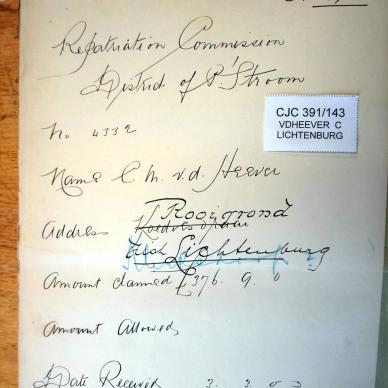 Repatriation Commission
District of P'Stroom
CJC 391/143
VDHEEVER C
LICHTENBURG
No 4332
Name C. M. v.d. Heever
Rooigrond
Address
Dist Lichtenburg
Amount claimed £376. 9. 0
Amount Allowed
Date Received 3. 3. 03